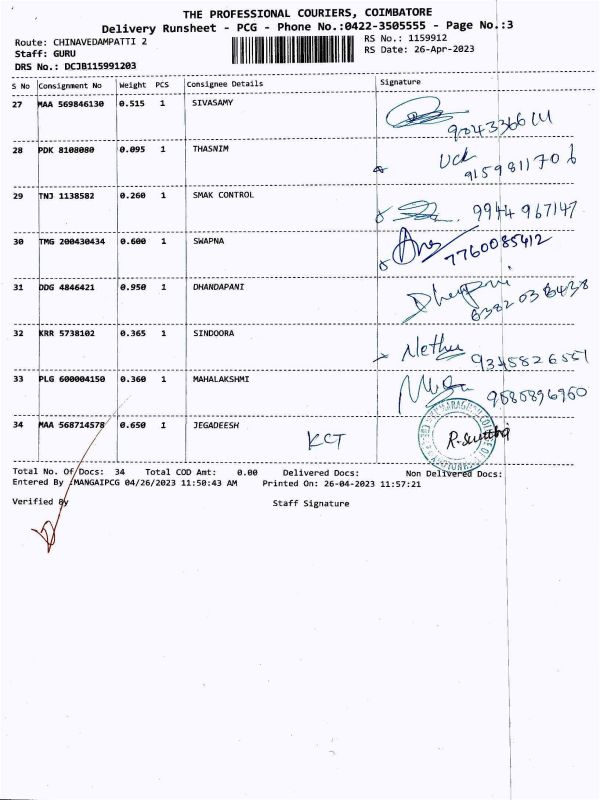 THE PROFESSIONAL COURIERS, COIMBATORE
Delivery Runsheet - PCG - Phone No.:0422-3505555 - Page No.:3
Route: CHINAVEDAMPATTI 2 RS No.: 1159912
Staff: GURU RS Date: 26-Apr-2023
DRS No.: DCJB115991203
S No Consignment No Weight PCS Consignee Details Signature
27 MAA 569846130 0.515 1 SIVASAMY
28 PDK 8108080 0.095 1 THASNIM
9159811706
29 TNJ 1138582 0.260 1 SMAK CONTROL 9944 967147
30 TMG 200430434 0.600 1 SWAPNA
7760085412
31 DDG 4846421 0.950 1 DHANDAPANI
32 KRR 5738102 0.365 1 SINDOORA
33 PLG 600004150 0.360 1 MAHALAKSHMI
34 MAA 568714578 0.650 1 JEGADEESH
KCT
Total No. Of Docs: 34 Total COD Amt: 0.00 Delivered Docs: Non Delivered Docs:
Entered By :MANGAIPCG 04/26/2023 11:50:43 AM Printed On: 26-04-2023 11:57:21
Verified By Staff Signature